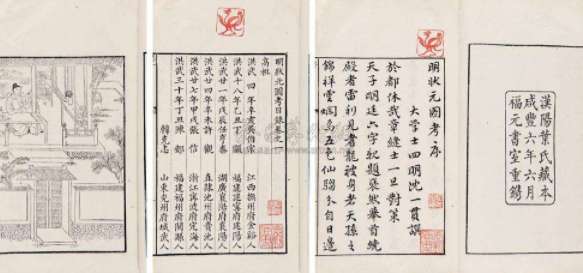 漢陽葉氏藏本
咸豐六年六月
福元書室重鐫
明狀元圖考序
大學士四明沈一貫譔
於都休哉章縫士一旦對策
天子明廷六字 題 然舉首
殿者雷利見者龍被身者天孫之
錦祥雲 為五色仙韶 自日邊
明狀元圖考目錄卷
高祖
洪武四年辛亥吳伯宗 江西撫州府金谿人
洪武十八年乙丑丁顯 福建建寧府建陽人
洪武廿一年戊辰任亨泰 湖廣襄陽府襄陽人
洪武廿四年辛未許觀 直隸池州府貴池人
洪武廿七年甲戌張信 浙江寧波府定海人
洪武三十年丁丑陳 福建福州府閩縣人
韓克忠 山東兗州府城武人